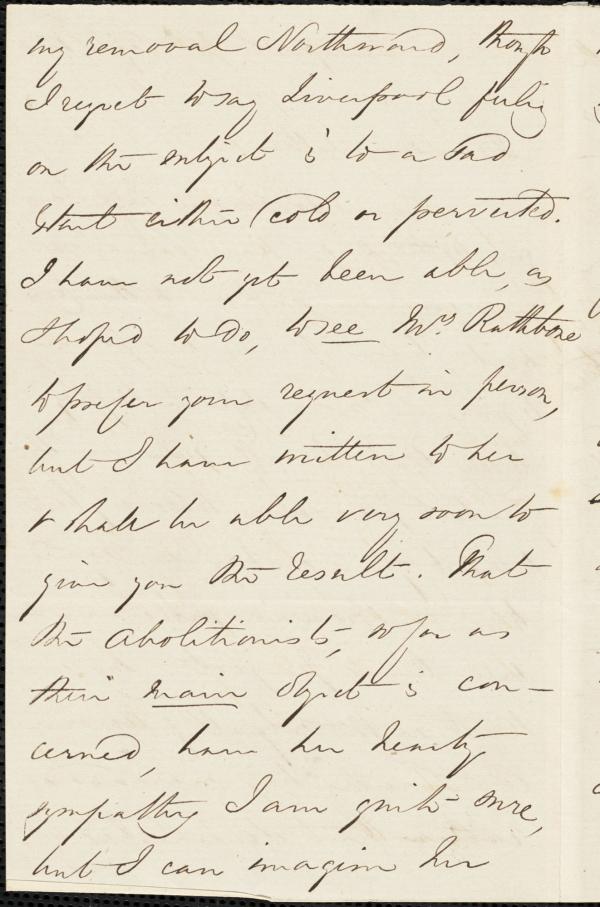 my removal Northward, though
I regret to say Liverpool feeling
on the subject is to a sad
extent either cold or perverted.
I have not yet been able, as
I hoped to do, to see Mrs. Rathbone
to prefer your request in person,
but I have written to her
& shall be able very soon to
give you the result. That
the Abolitionists, so far as
their main object is con-
cerned, have her hearty
sympathy I am quite sure,
but I can imagine her